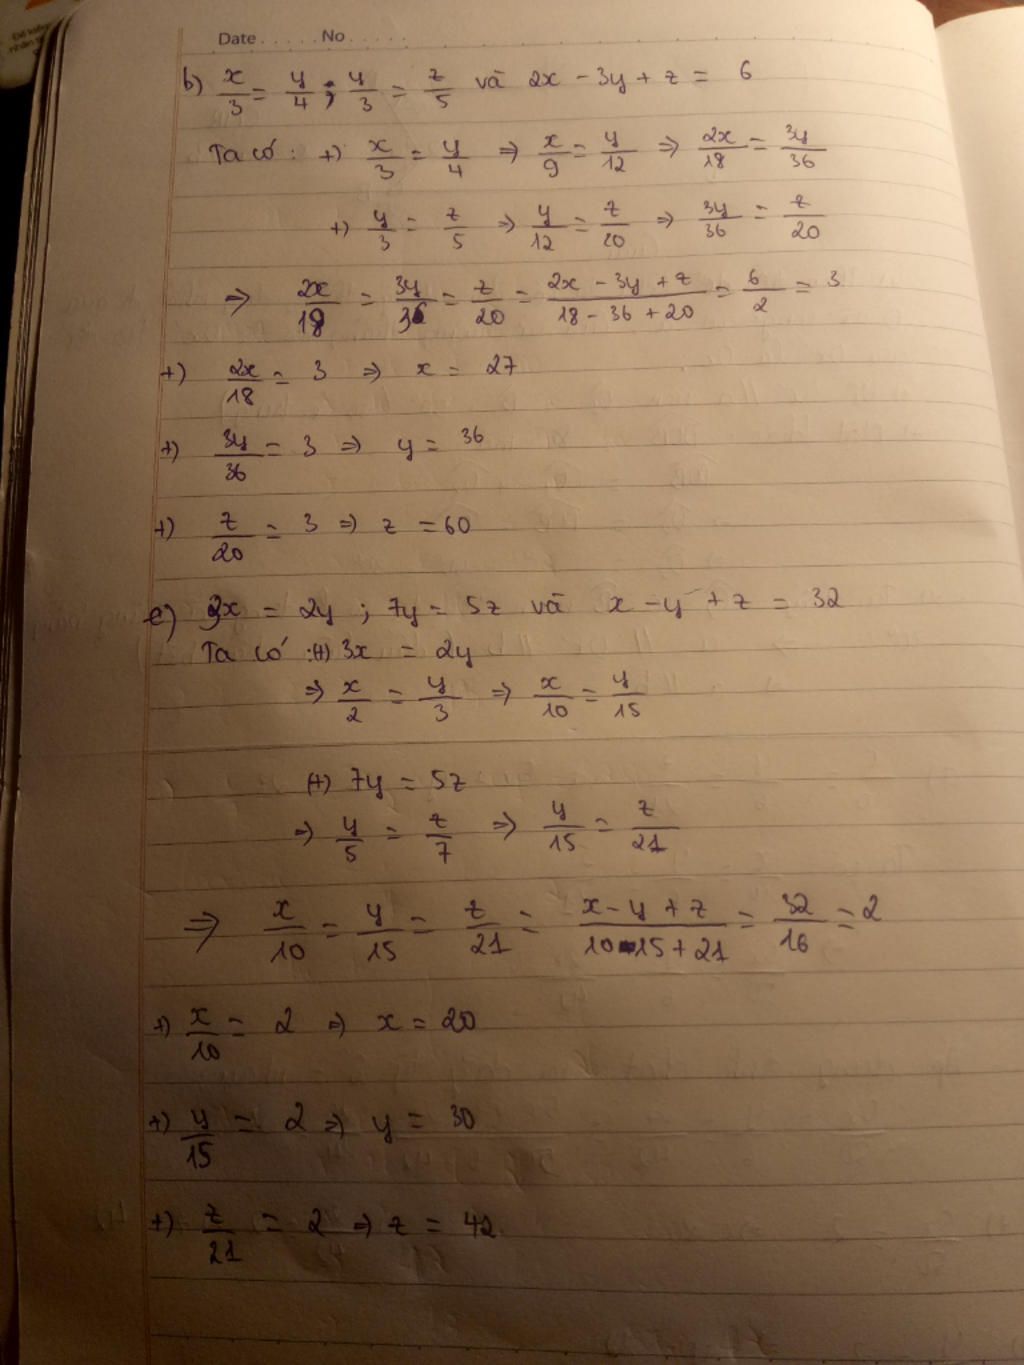 Date ..... No .....
b) x/3 = y/4 ; y/3 = z/5 và 2x - 3y + z = 6
Ta có : +) x/3 = y/4 => x/9 = y/12 => 2x/18 = 3y/36
+) y/3 = z/5 => y/12 = z/20 => 3y/36 = z/20
=> 2x/18 = 3y/36 = z/20 = (2x - 3y + z)/(18 - 36 + 20) = 6/2 = 3
+) 2x/18 = 3 => x = 27
+) 3y/36 = 3 => y = 36
+) z/20 = 3 => z = 60
c) 3x = 2y ; 7y = 5z và x - y + z = 32
Ta có : (+) 3x = 2y
=> x/2 = y/3 => x/10 = y/15
(+) 7y = 5z
=> y/5 = z/7 => y/15 = z/21
=> x/10 = y/15 = z/21 = (x - y + z)/(10 - 15 + 21) = 32/16 = 2
+) x/10 = 2 => x = 20
+) y/15 = 2 => y = 30
+) z/21 = 2 => z = 42